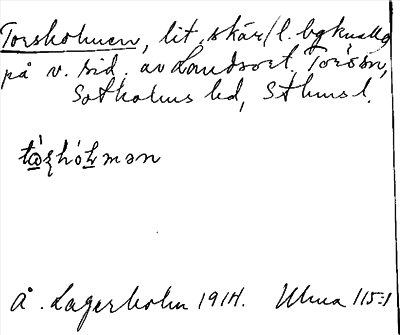 Torskholmen, lit. skär /l. bgknalle
på v. sid. av Landsort. Torö sn,
Sotholms hd, Sthms l.
Å. Lagerholm 1914. Utna 115:1